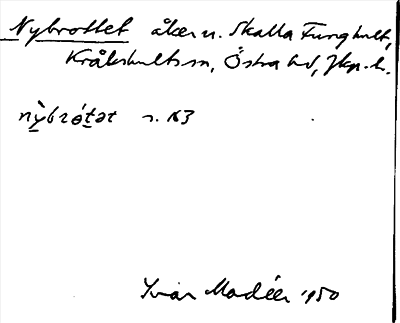 Nybrottet åker u. Skalla Funghult,
Kråkshults sn, Östra hd, Jkp. l.
nỳbrótət s. 163
Ivar Modéer 1950